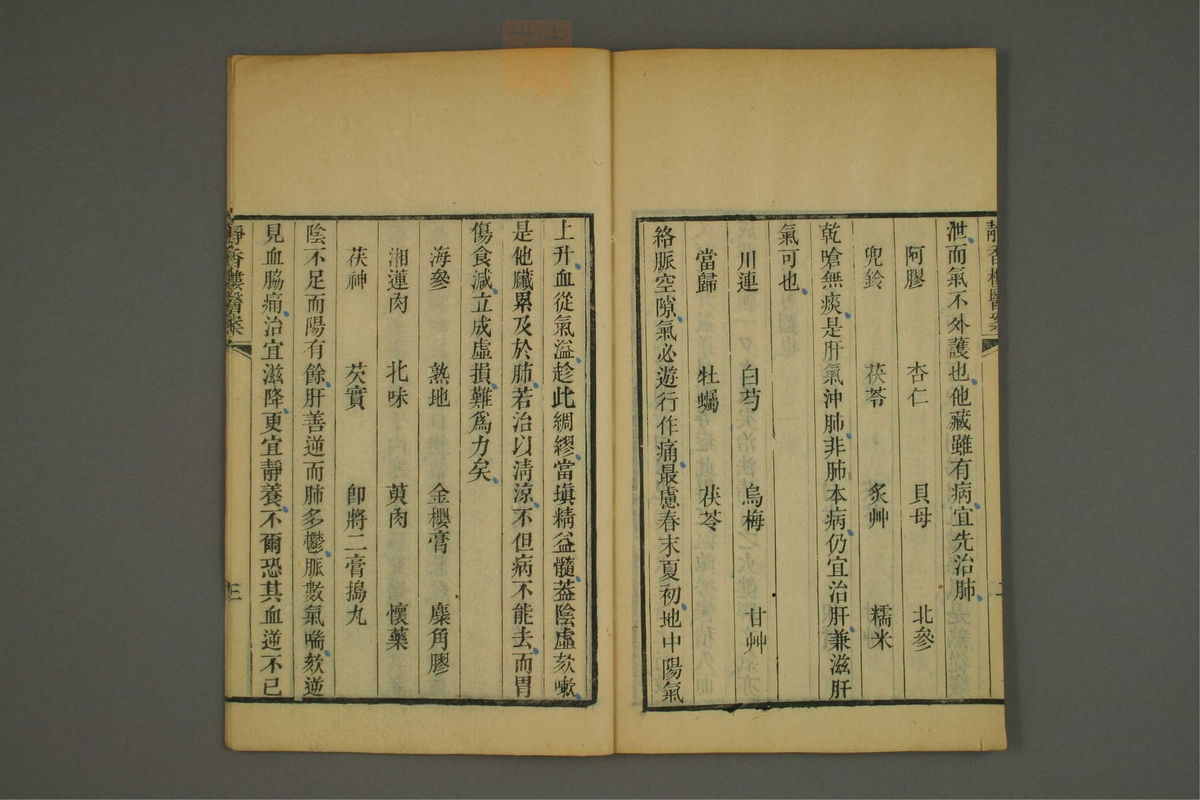 靜香樓醫案
泄而氣不外護也他藏雖有病宜先治肺
阿膠 杏仁 貝母 北參
兜鈴 茯苓 炙艸 糯米
乾嗆無痰是肝氣沖肺非肺本病仍宜治肝兼滋肝
氣可也
川連 白芍 烏梅 甘艸
當歸 牡蠣 茯苓
絡脈空隙氣必遊行作痛最慮春末夏初地中陽氣
上升血從氣溢趁此綢繆當塡精益髓葢陰虛欬嗽
是他臟累及於肺若治以淸涼不但病不能去而胃
傷食減立成虛損難爲力矣
海參 熟地 金櫻膏 麋角膠
湘蓮肉 北味 萸肉 懷藥
茯神 芡實 卽將二膏搗丸
陰不足而陽有餘肝善逆而肺多鬱脈數氣喘欬逆
見血脇痛治宜滋降更宜靜養不爾恐其血逆不已
靜香樓醫案
三